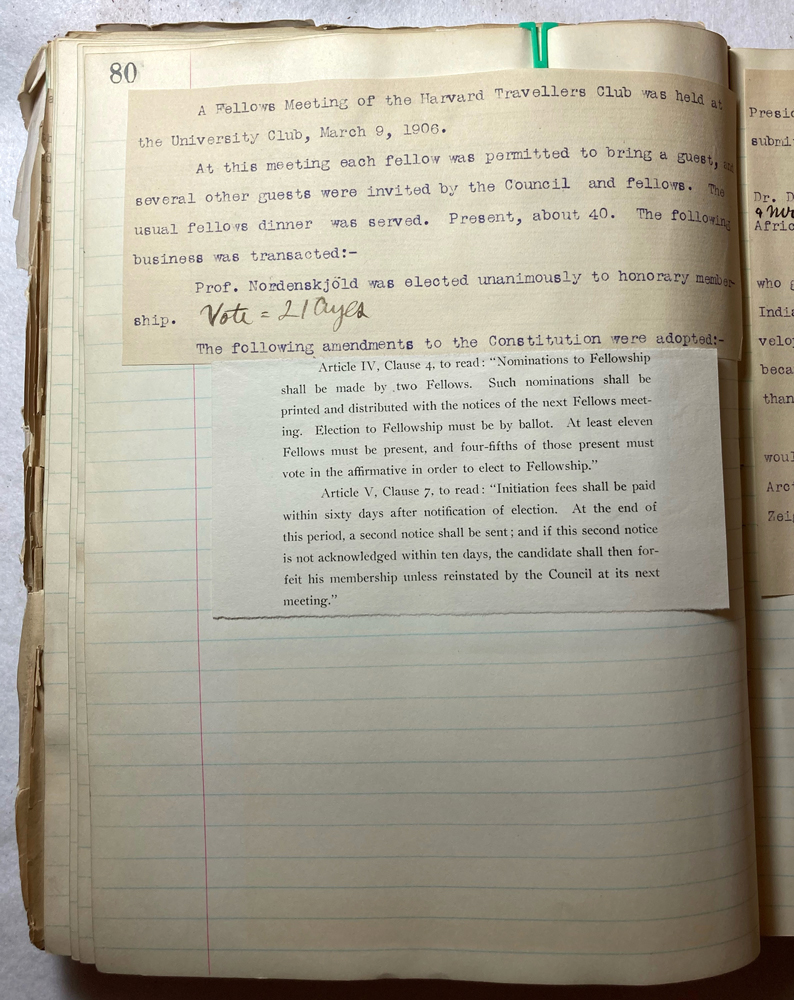 80
A Fellows Meeting of the Harvard Travellers Club was held at
the University Club, March 9, 1906.
At this meeting each fellow was permitted to bring a guest,
several other guests were invited by the Council and fellows. The
usual fellows dinner was served. Present, about 40. The following
business was transacted:-
Prof. Nordenskjöld was elected unanimously to honorary member-
ship. Vote = 21 Ayes
The following amendments to the Constitution were adopted:-
Article IV, Clause 4, to read: "Nominations to Fellowship
shall be made by two Fellows. Such nominations shall be
printed and distributed with the notices of the next Fellows meet-
ing. Election to Fellowship must be by ballot. At least eleven
Fellows must be present, and four-fifths of those present must
vote in the affirmative in order to elect to Fellowship."
Article V, Clause 7, to read: "Initiation fees shall be paid
within sixty days after notification of election. At the end of
this period, a second notice shall be sent; and if this second notice
is not acknowledged within ten days, the candidate shall then for-
feit his membership unless reinstated by the Council at its next
meeting."
Presid
submi
Dr. D
Afric
who
India
velo
beca
than
woul
Arc
Zei